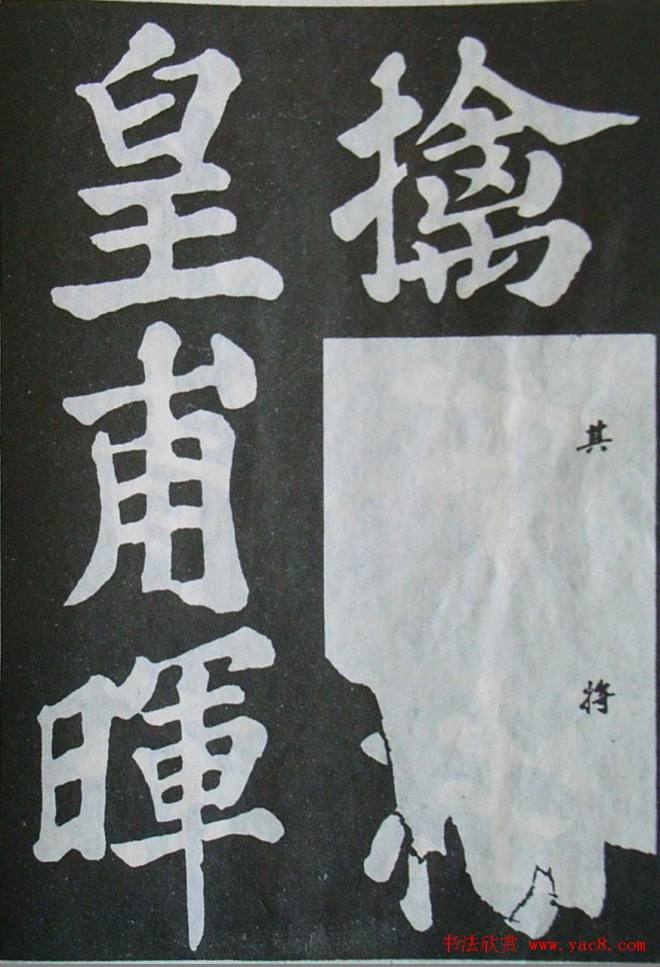 擒其將
皇甫暉
书法欣赏 www.yac8.com